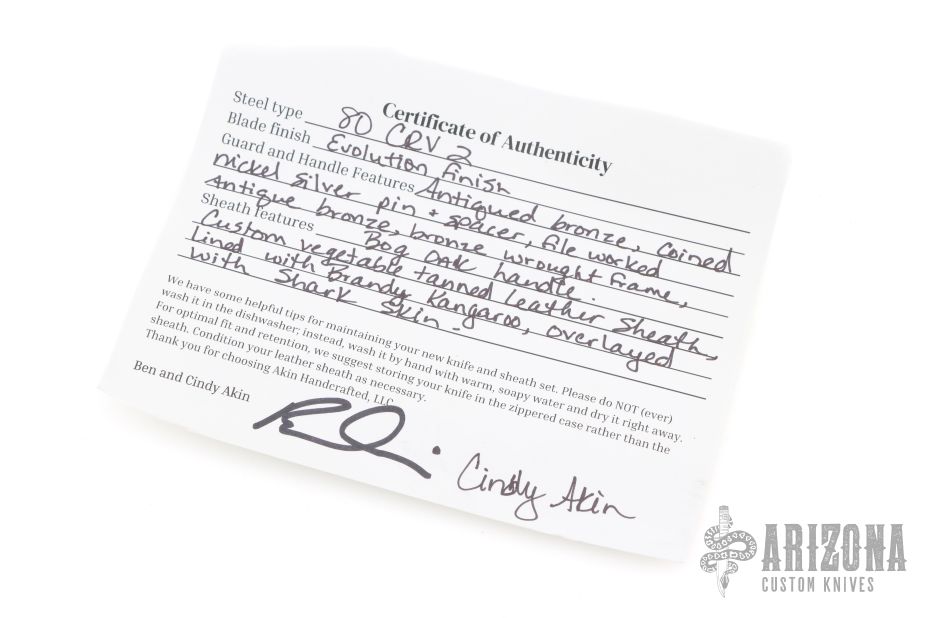 Certificate of Authenticity
Steel type 80 CRV 2
Blade finish Evolution Finish
Guard and Handle Features Antiqued bronze, Coined
nickel silver pin + spacer, file worked
Antique bronze, bronze wrought frame,
Bog OAK handle.
Sheath features
Custom vegetable tanned leather Sheath,
lined with Brandy Kangaroo, overlayed
with Shark Skin.
We have some helpful tips for maintaining your new knife and sheath set. Please do NOT (ever)
wash it in the dishwasher; instead, wash it by hand with warm, soapy water and dry it right away.
For optimal fit and retention, we suggest storing your knife in the zippered case rather than the
sheath. Condition your leather sheath as necessary.
Thank you for choosing Akin Handcrafted, LLC
Ben and Cindy Akin
Cindy Akin
ARIZONA
CUSTOM KNIVES